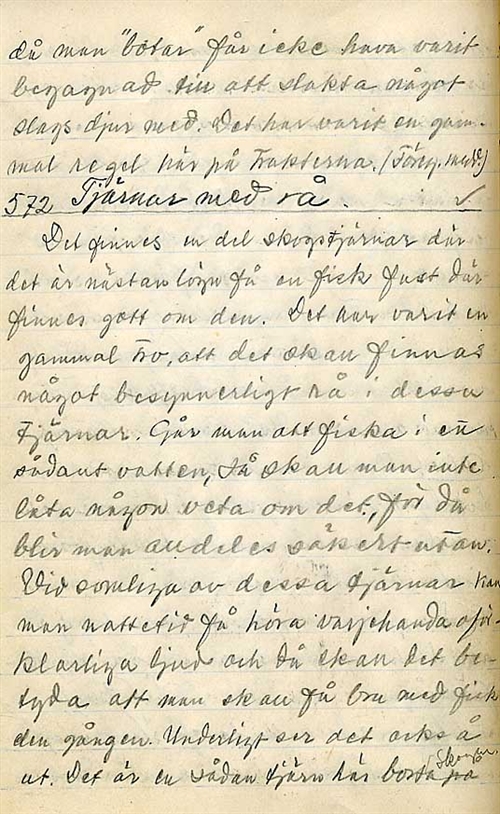 då man "botar" får icke hava varit
begagnad till att slakta något
slags djur med. Det har varit en gam-
mal regel här på trakterna. (Förg. medd.)
572 Tjärnar med rå.
Det finnes en del skogstjärnar där
det är nästan lögn få en fisk fast där
finnes gott om den. Det har varit en
gammal tro, att det skall finnas
något besynnerligt rå i dessa
tjärnar. Går man att fiska i en
sådant vatten, så skall man inte
låta någon veta om det, för då
blir man alldeles säkert utan.
Vid somliga av dessa tjärnar kan
man nattetid få höra varjehanda oför-
klarliga ljud och då skall det be-
tyda att man skall få bra med fisk
den gången. Underligt ser det också
ut. Det är en sådan tjärn här borta på
Skogen.